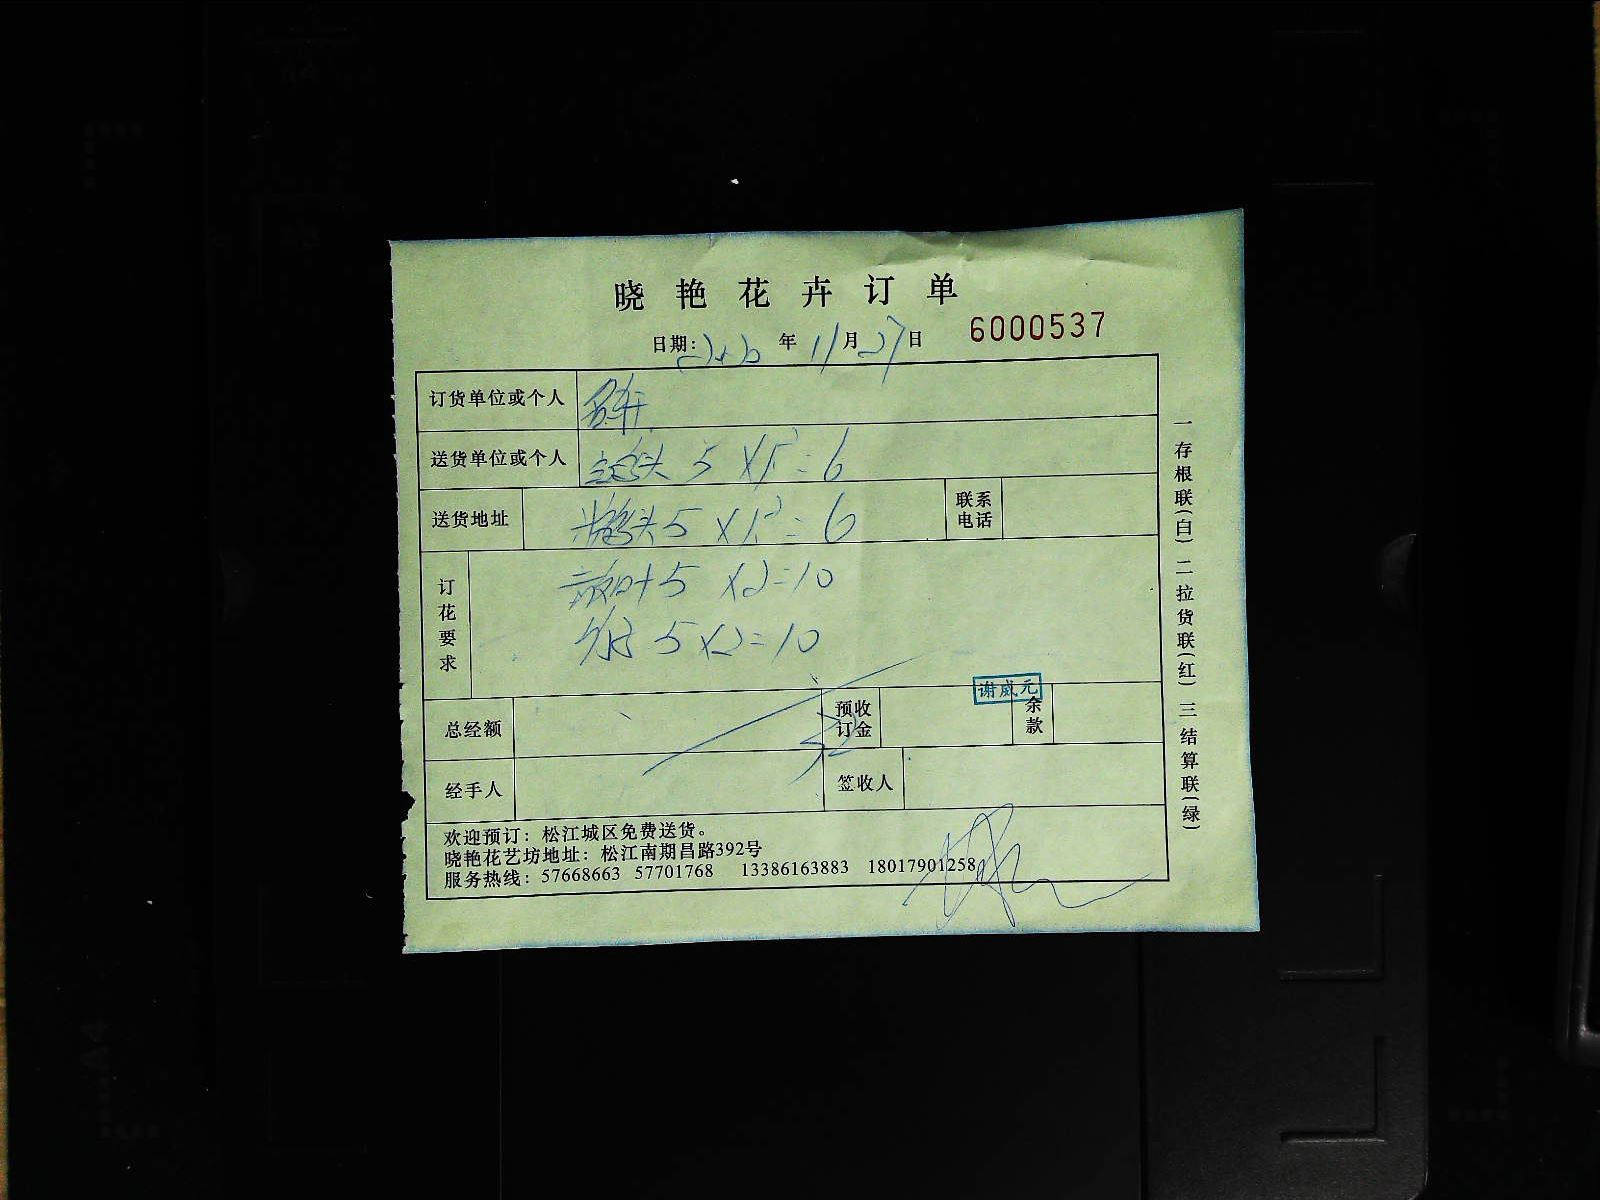 晓艳花卉订单
日期: 年 11月27日 6000537
订货单位或个人
送货单位或个人 头 5 × 1.2 = 6
送货地址 头 5 × 1.2 = 6 联系电话
订花要求 5 × 2 = 10
5 × 2 = 10
总经额 预收订金 谢威元 余款
32
经手人 签收人
欢迎预订：松江城区免费送货。
晓艳花艺坊地址：松江南期昌路392号
服务热线：57668663 57701768 13386163883 18017901258
一存根联(白) 二拉货联(红) 三结算联(绿)